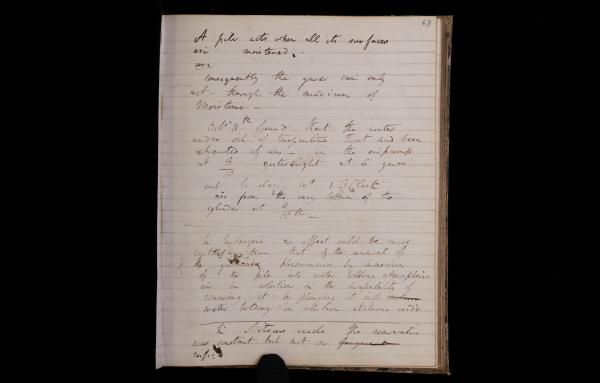 63
A pile acts when all its surfaces
are moistened.
are
consequently the gases can only
act through the medium of
Moisture –
Octr 11th found that the water
under oil of turpentine that had been
exhausted of air – in the air pump
at 6 gave
out at 1 O Clock
air from the very bottom of the
cylinder at
In hydrogene no effect could be more
than that of the renewal of
the galvanic phaenomenon by immersion
of the pile into water holding atmospheric
air in solution & the incapability of
renewing it by plunging it into
water holding in solution Nitrous oxide.
In Nitrous oxide the renovation
was constant but not so frequent